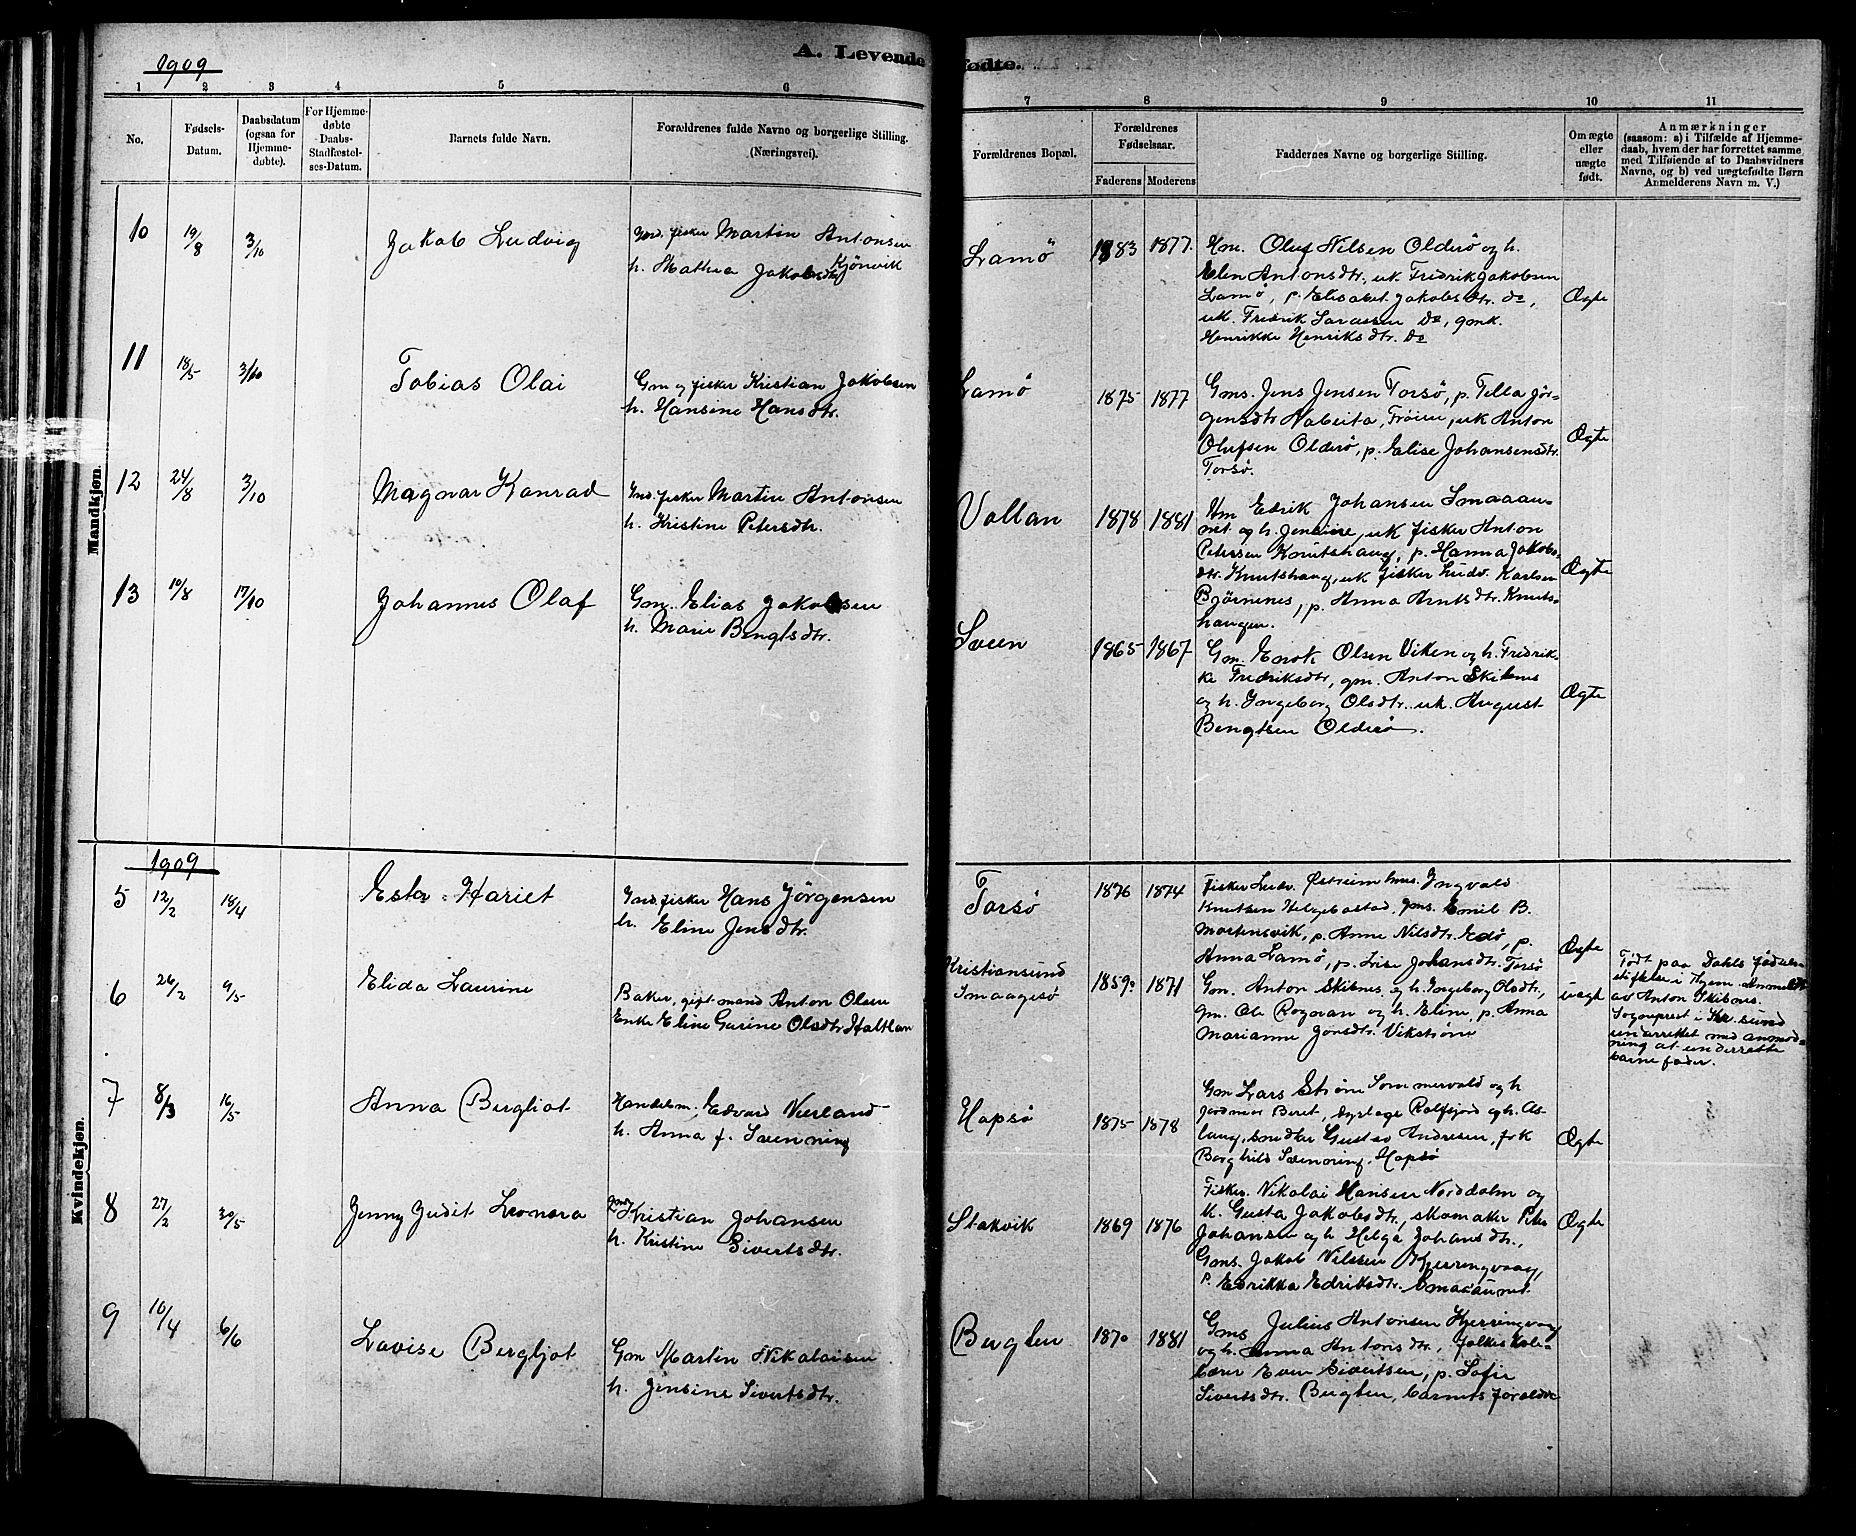 1909
A. Levende fødte.
1 2 3 4 5 6 7 8 9 10 11
No.
Fødsels-
Datum.
Daabsdatum
(ogsaa for
Hjemme-
døbte).
For Hjemme-
døbte
Daabs-
Stadfæstel-
ses-Datum.
Barnets fulde Navn.
Forældrenes fulde Navne og borgerlige Stilling.
(Næringsvei).
Forældrenes Bopæl.
Forældrenes
Fødselsaar.
Faderens Moderens
Faddernes Navne og borgerlige Stilling.
Om ægte
eller
uægte
født.
Anmærkninger
(saasom: a) i Tilfælde af Hjemme-
daab, hvem der har forrettet samme,
med Tilføiende af to Daabsvidners
Navne, og b) ved uægtefødte Børn
Anmelderens Navn m. V.)
Mandkjøn.
10 19/8 3/10 Jakob Ludvig
Gmd. fisker Martin Antonsen
h. Mathea Jakobsdtr Kjönvik
Lamö 1883 1877.
Hm. Oluf Nilsen Olderö og h.
Elen Antonsdtr., uk. Fredrik Jakobsen
Lamö, p. Elisabet Jakobsdtr. do,
uk. Fredrik Larsen do, gmk.
Henrikke Henriksdtr. do
Ægte
11 18/5 3/10 Tobias Olai
Gm og fisker Kristian Jakobsen
h. Hansine Hansdtr.
Lamö 1875 1877
Gms. Jens Jensen Torsö, p. Tella Jör-
gensdtr Nabeita, Fröien, uk Anton
Olufsen Olderö, p. Elise Johansensdtr.
Torsö.
Ægte
12 24/8 3/10 Magnar Konrad
Gmd. fisker Martin Antonsen
h. Kristine Petersdtr.
Vollan 1878 1881
Um Edrik Johansen Smaaau-
net og h. Jensine, uk fisker Anton
Petersen Knutshaug, p. Hanna Jakobs-
dtr. Knutshaug, uk fisker Ludv. Karlsen
Björnenes, p. Anna Arntsdtr. Knuts-
haugen.
Ægte
13 10/8 17/10 Johannes Olaf
Gm. Elias Jakobsen
h. Marie Bengtsdtr.
Sveen 1865 1867
Gm. Enok Olsen Viken og h. Fredrik-
ke Fredriksdtr, gm. Anton Skibnes
og h. Ingeborg Olsdtr. uk. August
Bengtsen Olderö.
Ægte
1909
Kvindekjøn.
5 12/2 18/4 Ester Hariet
Gmd. fisker Hans Jörgensen
h. Eline Jensdtr.
Torsö 1876 1874
Fisker Ludv. Östreim hms. Ingvald
Knutsen Helgebostad, gms. Emil B.
Mortensvik, p. Anne Nilsdtr. Edö, p.
Anna Lamö, p. Lise Johansdtr. Torsö
Ægte
6 26/2 9/5 Elida Laurine
Baker, gift mand Anton Olsen
Enke Eline Gurine Olsdtr Haltlan
Kristiansund
Smaagesö 1859. 1871
Gm. Anton Skibnes og h. Ingeborg Olsdtr,
gm. Ole Rogvan og h. Eline, p. Anna
Marianne Jonsdtr. Vikström
uægt
Født paa Dahls fødsels-
stiftelse i Thjem. Anmeldt
av Anton Skibnes.
Sogneprest i Kr.sund
underrettet med anmod-
ning at underrette
barnefader.
7 8/3 16/5 Anna Bergliot
Handelsm. Edvard Nerland
h. Anna f. Svenning
Hopsö 1875 1878
Gm Lars Ström Sommervold og h
jordmor Beret, Rolfsjord og h. As-
laug, Gustav Andresen, frk
Borghild Svenning, Hopsö
Ægte
8 27/2 30/5 Jenny Judit Leonora
Gmd. Kristian Johansen
h. Kristine Sivertsdtr.
Stakvik 1869 1876
Fisker. Nikolai Hansen Norddalm og
h. Gusta Jakobsdtr., skomaker Peter
Johansen og h Helga Johansdtr.,
Gms. Jakob Nilssen Kjerringvaag,
p. Edrikka Edriksdtr. Smaaaunet.
Ægte
9 10/4 6/6 Lovise Bergljot
Gm Martin Nikolaisen
h. Jensine Sivertsdtr.
Bergten 1870 1881
Gms Julius Antonsen Kjerringvaag
og h. Anna Antonsdtr., folkeskole-
lærer Even Sivertsen, p. Sofie
Sivertsdtr. Bergten, barnets forældre